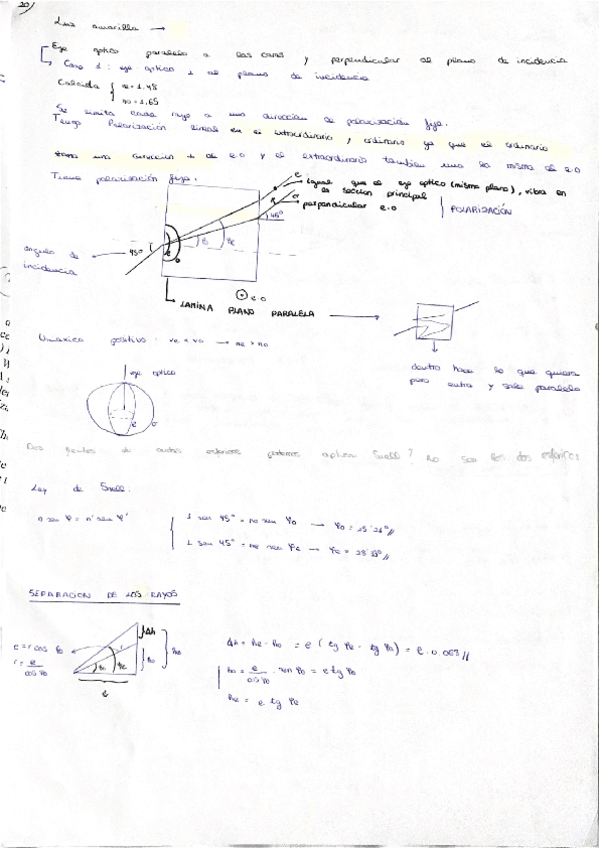 20)
Luz amarilla →
Eje optico paralelo a las caras y perpendicular al plano de incidencia
Caso 1: eje optico ⊥ al plano de incidencia
Calcita { ne = 1.48
no = 1.65
Se limita cada rayo a una direccion de polarización fija.
Tengo Polarización lineal en el extraordinario y ordinario ya que el ordinario
una direccion ⊥ al e.o y el extraordinario tambien una la misma al e.o
Tiene polarización fija.
e igual que el eje optico (mismo plano), vibra en
la seccion principal
o perpendicular e.o | POLARIZACIÓN
45º
angulo de incidencia ← 45º
⊙ e.o
LAMINA PLANO PARALELA →
dentro hace lo que quiera
pero entra y sale paralelo
Uniaxico positivo: ve < vo → ne > no
eje optico
e o
Dos frentes de ondas esfericos podemos aplicar Snell? No son los dos esfericos
Ley de Snell:
n sen φ = n' sen φ' { 1 sen 45º = no sen φo → φo = 25'23º //
1 sen 45º = ne sen φe → φe = 28'33º //
SEPARACION DE LOS RAYOS
e = r cos φo
r = e / cos φo
φo φe Δh ho he
e
Δh = he - ho = e ( tg φe - tg φo ) = e · 0.063 //
ho = e / cos φo · sen φo = e tg φo
he = e tg φe